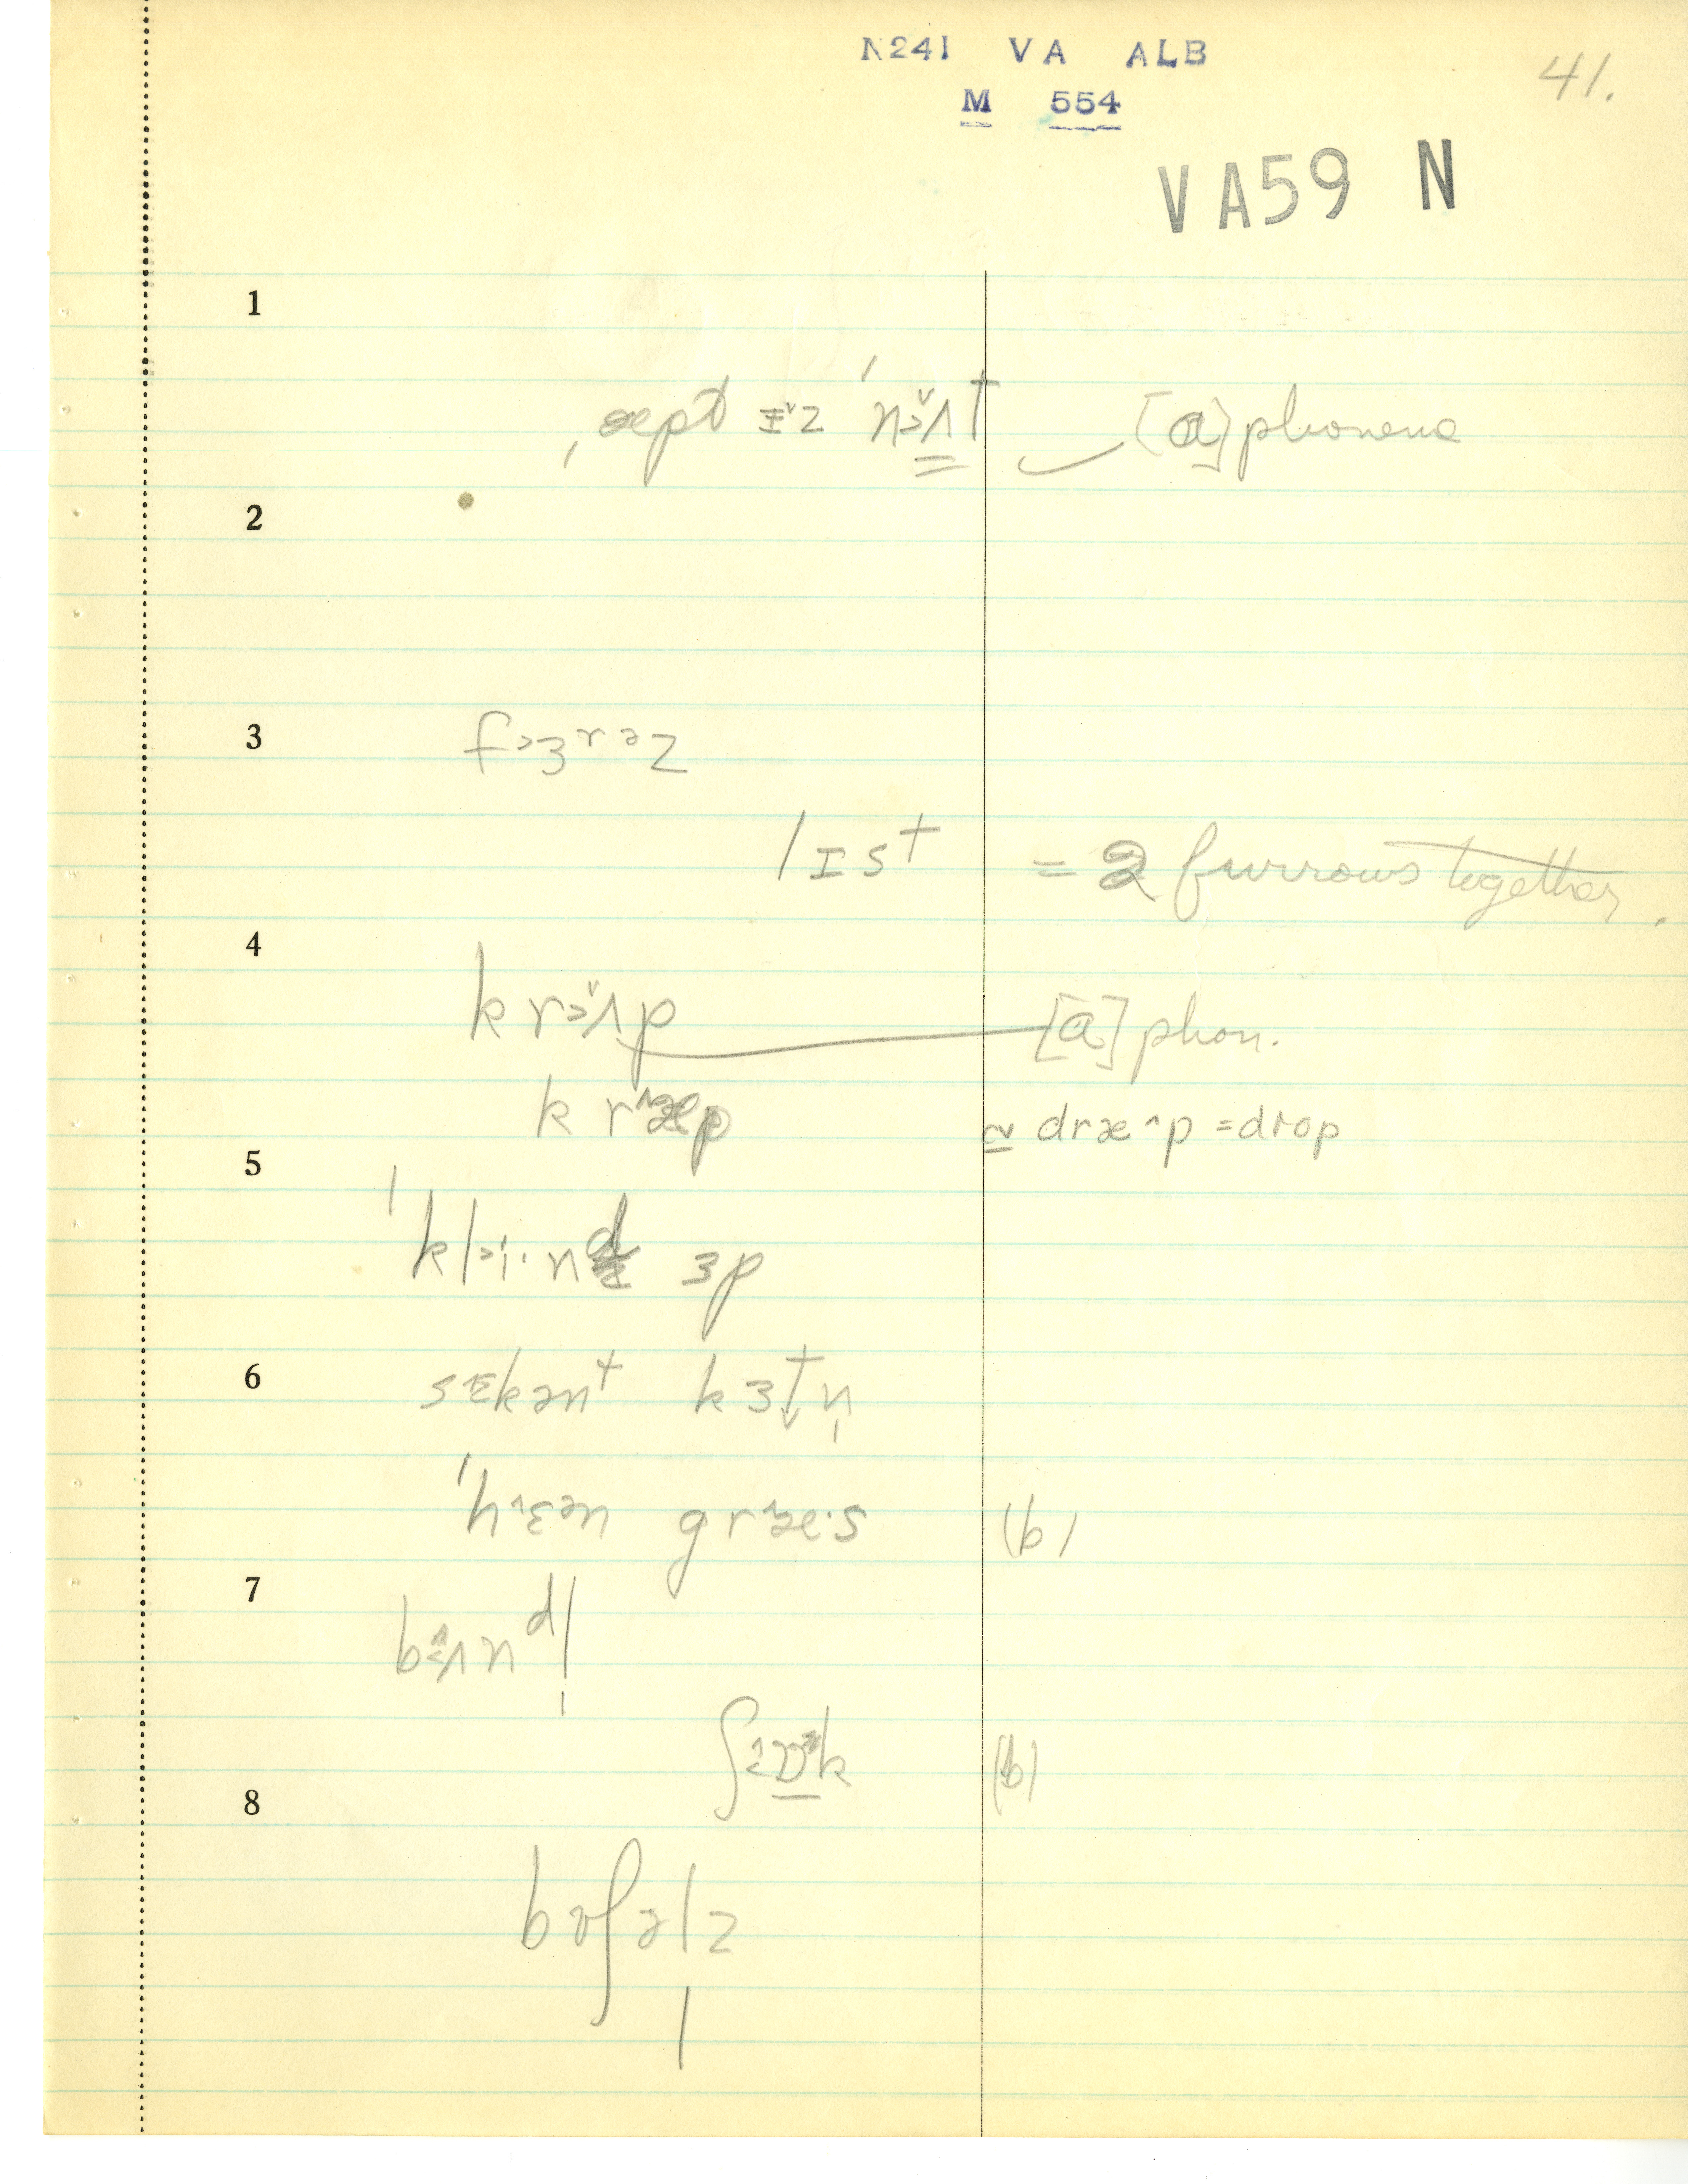 N241 VA ALB
41.
M 554
VA59 N
1
ˌæpt ɪ˅z ˈn>˅ʌt [ɑ] phoneme
2
3
f>ɜrəz
lɪst = 2 furrows together.
4
kr>˅ʌp [ɑ] phon.
kr^æp
≃ dræ^p = drop
5
ˈkl>i·nd ɜp
6
sɛkənt kɜtn̩
ˈh^ɛən gr^æ·s (b)
7
bʌndl̩
k (b)
8
bʊʃəl̩z